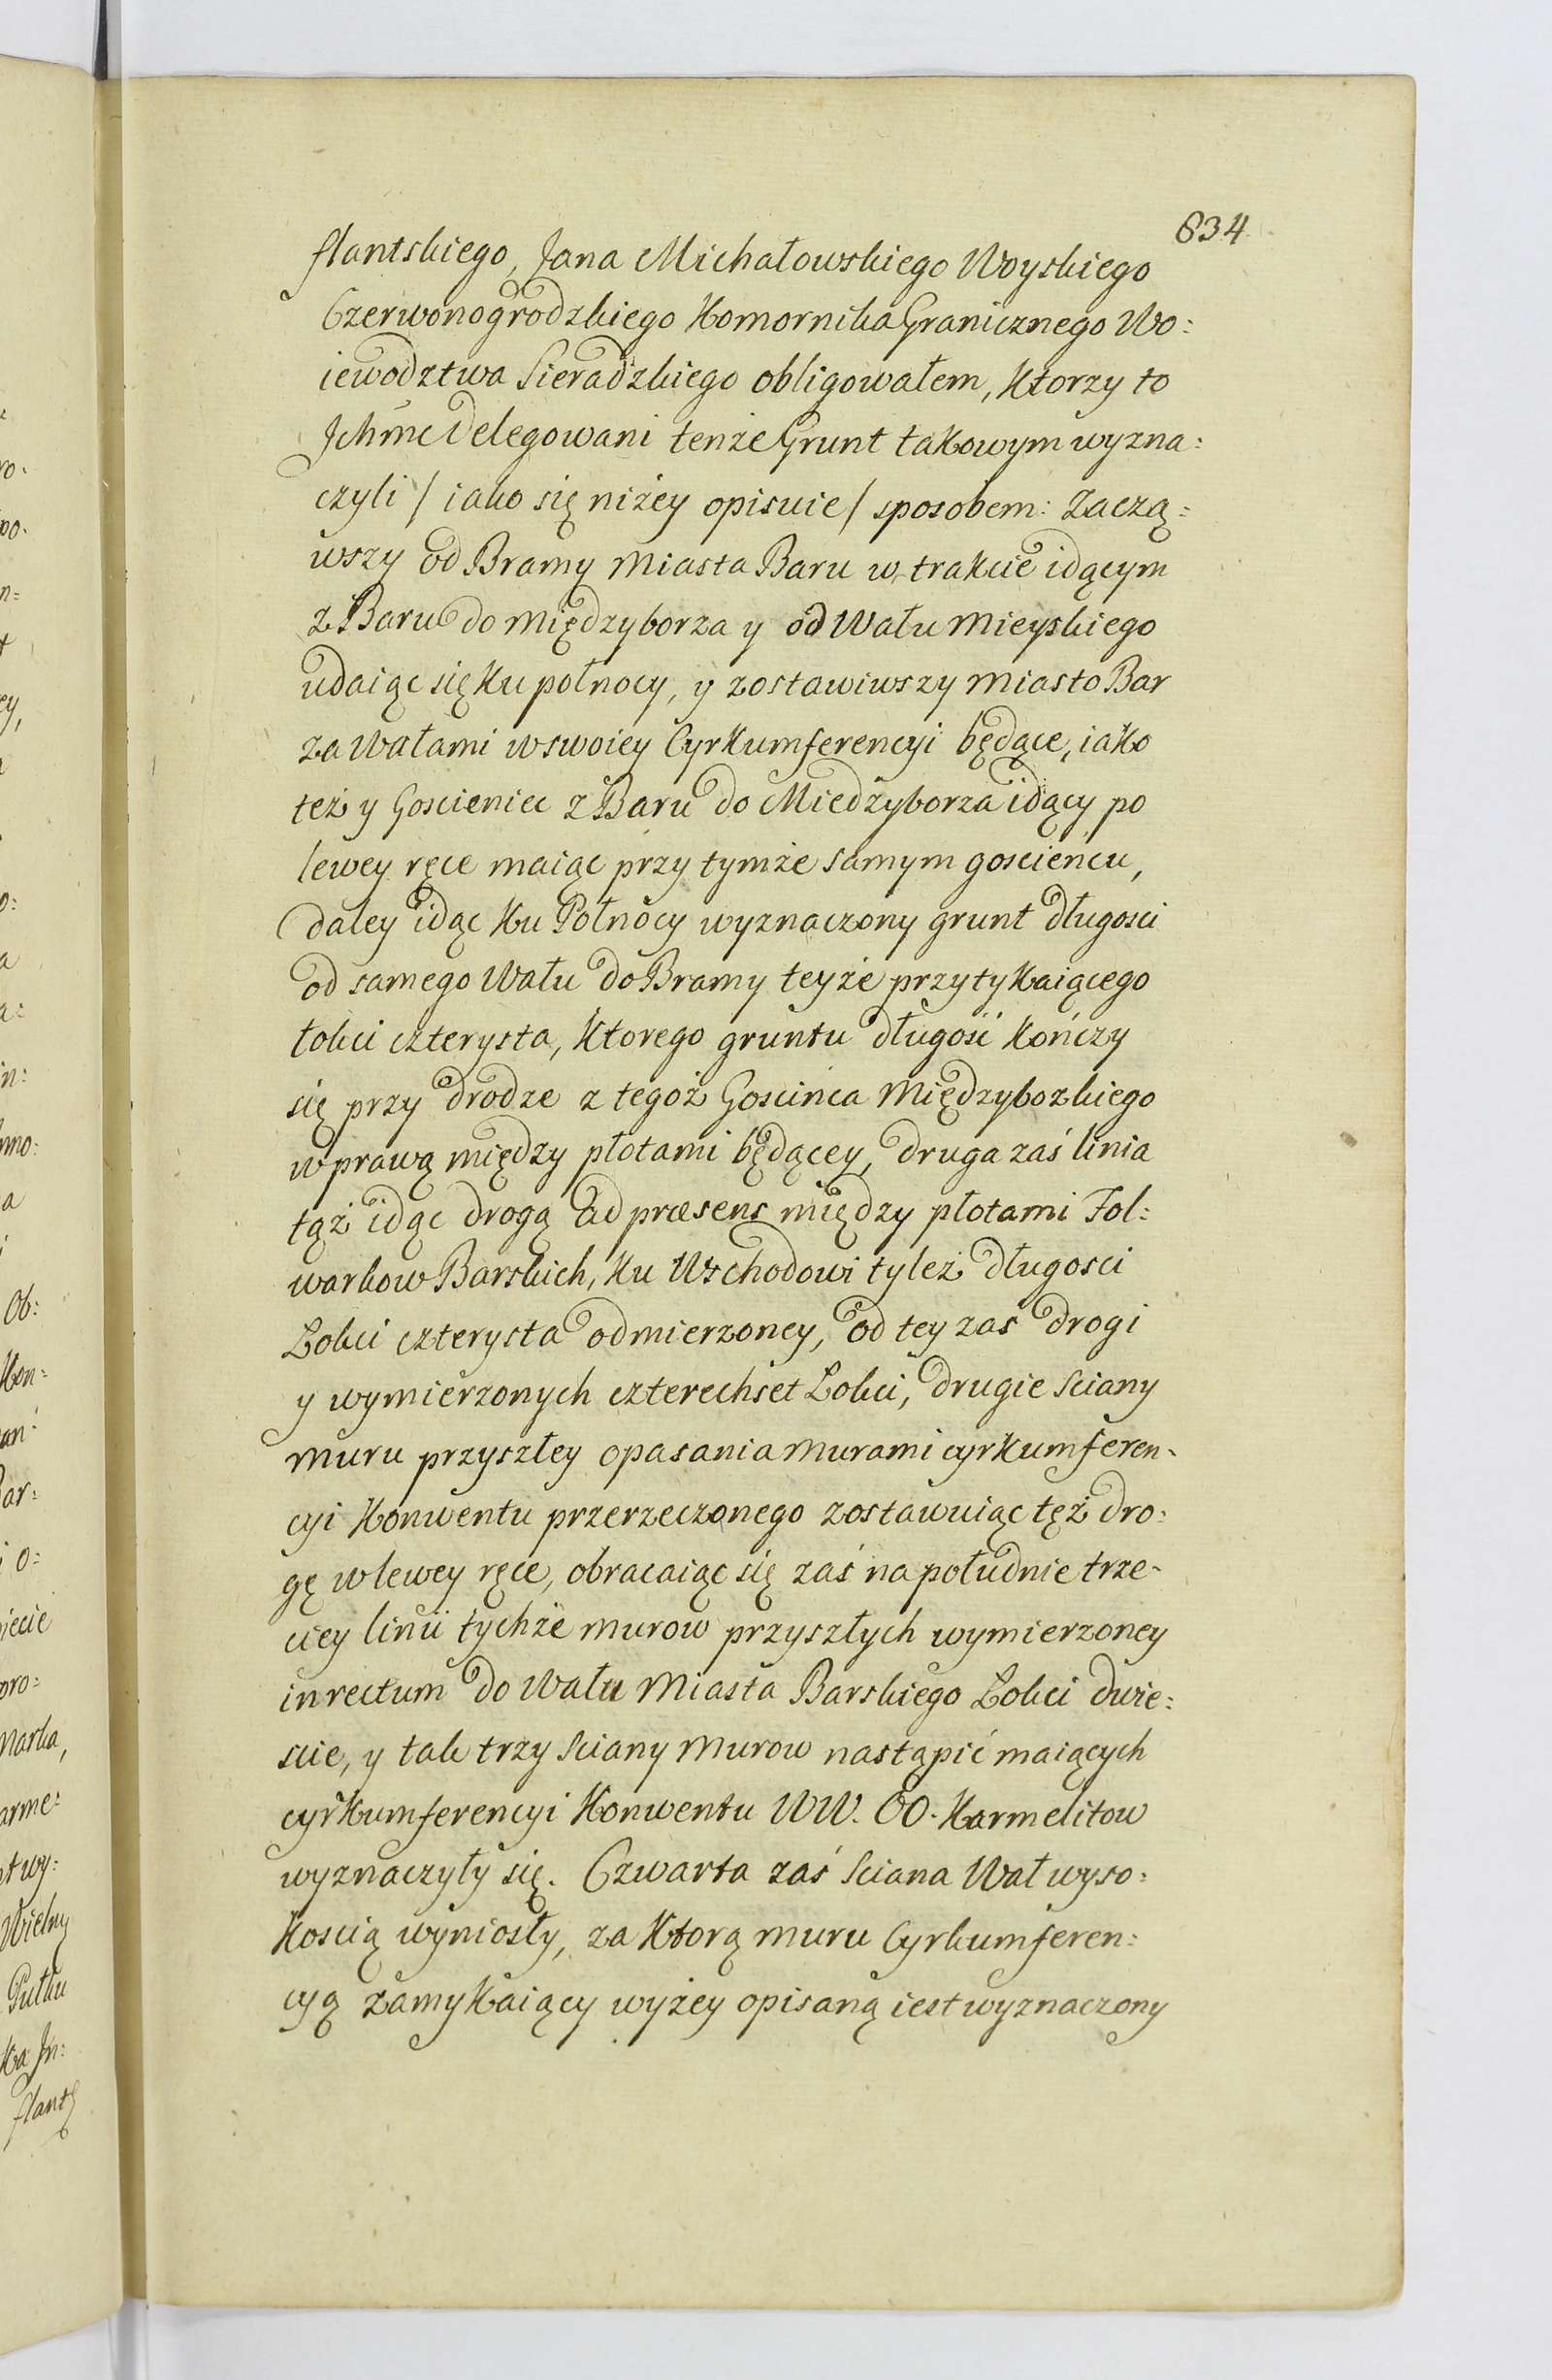 634
flantskiego, Jana Michałowskiego Woyskiego
Czerwonogrodzkiego Komornika Granicznego Wo:
iewodztwa Sieradzkiego obligowałem, Ktorzy to
Jchmc Delegowani tenże Grunt takowym wyzna:
czyli / iako się niżey opisuie / sposobem: Zaczą:
wszy od Bramy Miasta Baru w trakcie idącym
z Baru do Międzyborza y od Wału Mieyskiego
udaiąc się Ku połnocy, y zostawiwszy Miasto Bar
za Wałami w swoiey Cyrkumferencyi będące, iako
też y Goscieniec z Baru do Miedzyborza idący po
lewey ręce maiąc przy tymże samym goscieńcu,
daley idąc Ku Połnocy wyznaczony grunt długosci
od samego Wału do Bramy teyże przytykaiącego
łokci czterysta, Ktorego gruntu długość Kończy
się przy drodze z tegoż Goscińca Międzybozkiego
w prawą między płotami będącey, druga zaś linia
tąż idąc drogą ad præsens między płotami Fol:
warkow Barskich, Ku Wschodowi tyleż długosci
Łokci czterysta odmierzoney, od tey zaś drogi
y wymierzonych czterechset Łokci, drugie sciany
muru przyszłey opasania murami cyrkumferen-
cyi Konwentu przerzeczonego zostawuiąc tęż dro:
gę w lewey ręce, obracaiąc się zaś na południe trze-
ciey linii tychże murow przyszłych wymierzoney
in rectum do Wału Miasta Barskiego Łokci dwie:
scie, y tak trzy sciany murow nastąpić maiących
cyrkumferencyi Konwentu WW. OO. Karmelitow
wyznaczyły się. Czwarta zaś sciana Wał wyso:
Koscią wyniosły, za Ktorą muru Cyrkumferen:
cyą zamykaiący wyżey opisaną iest wyznaczony